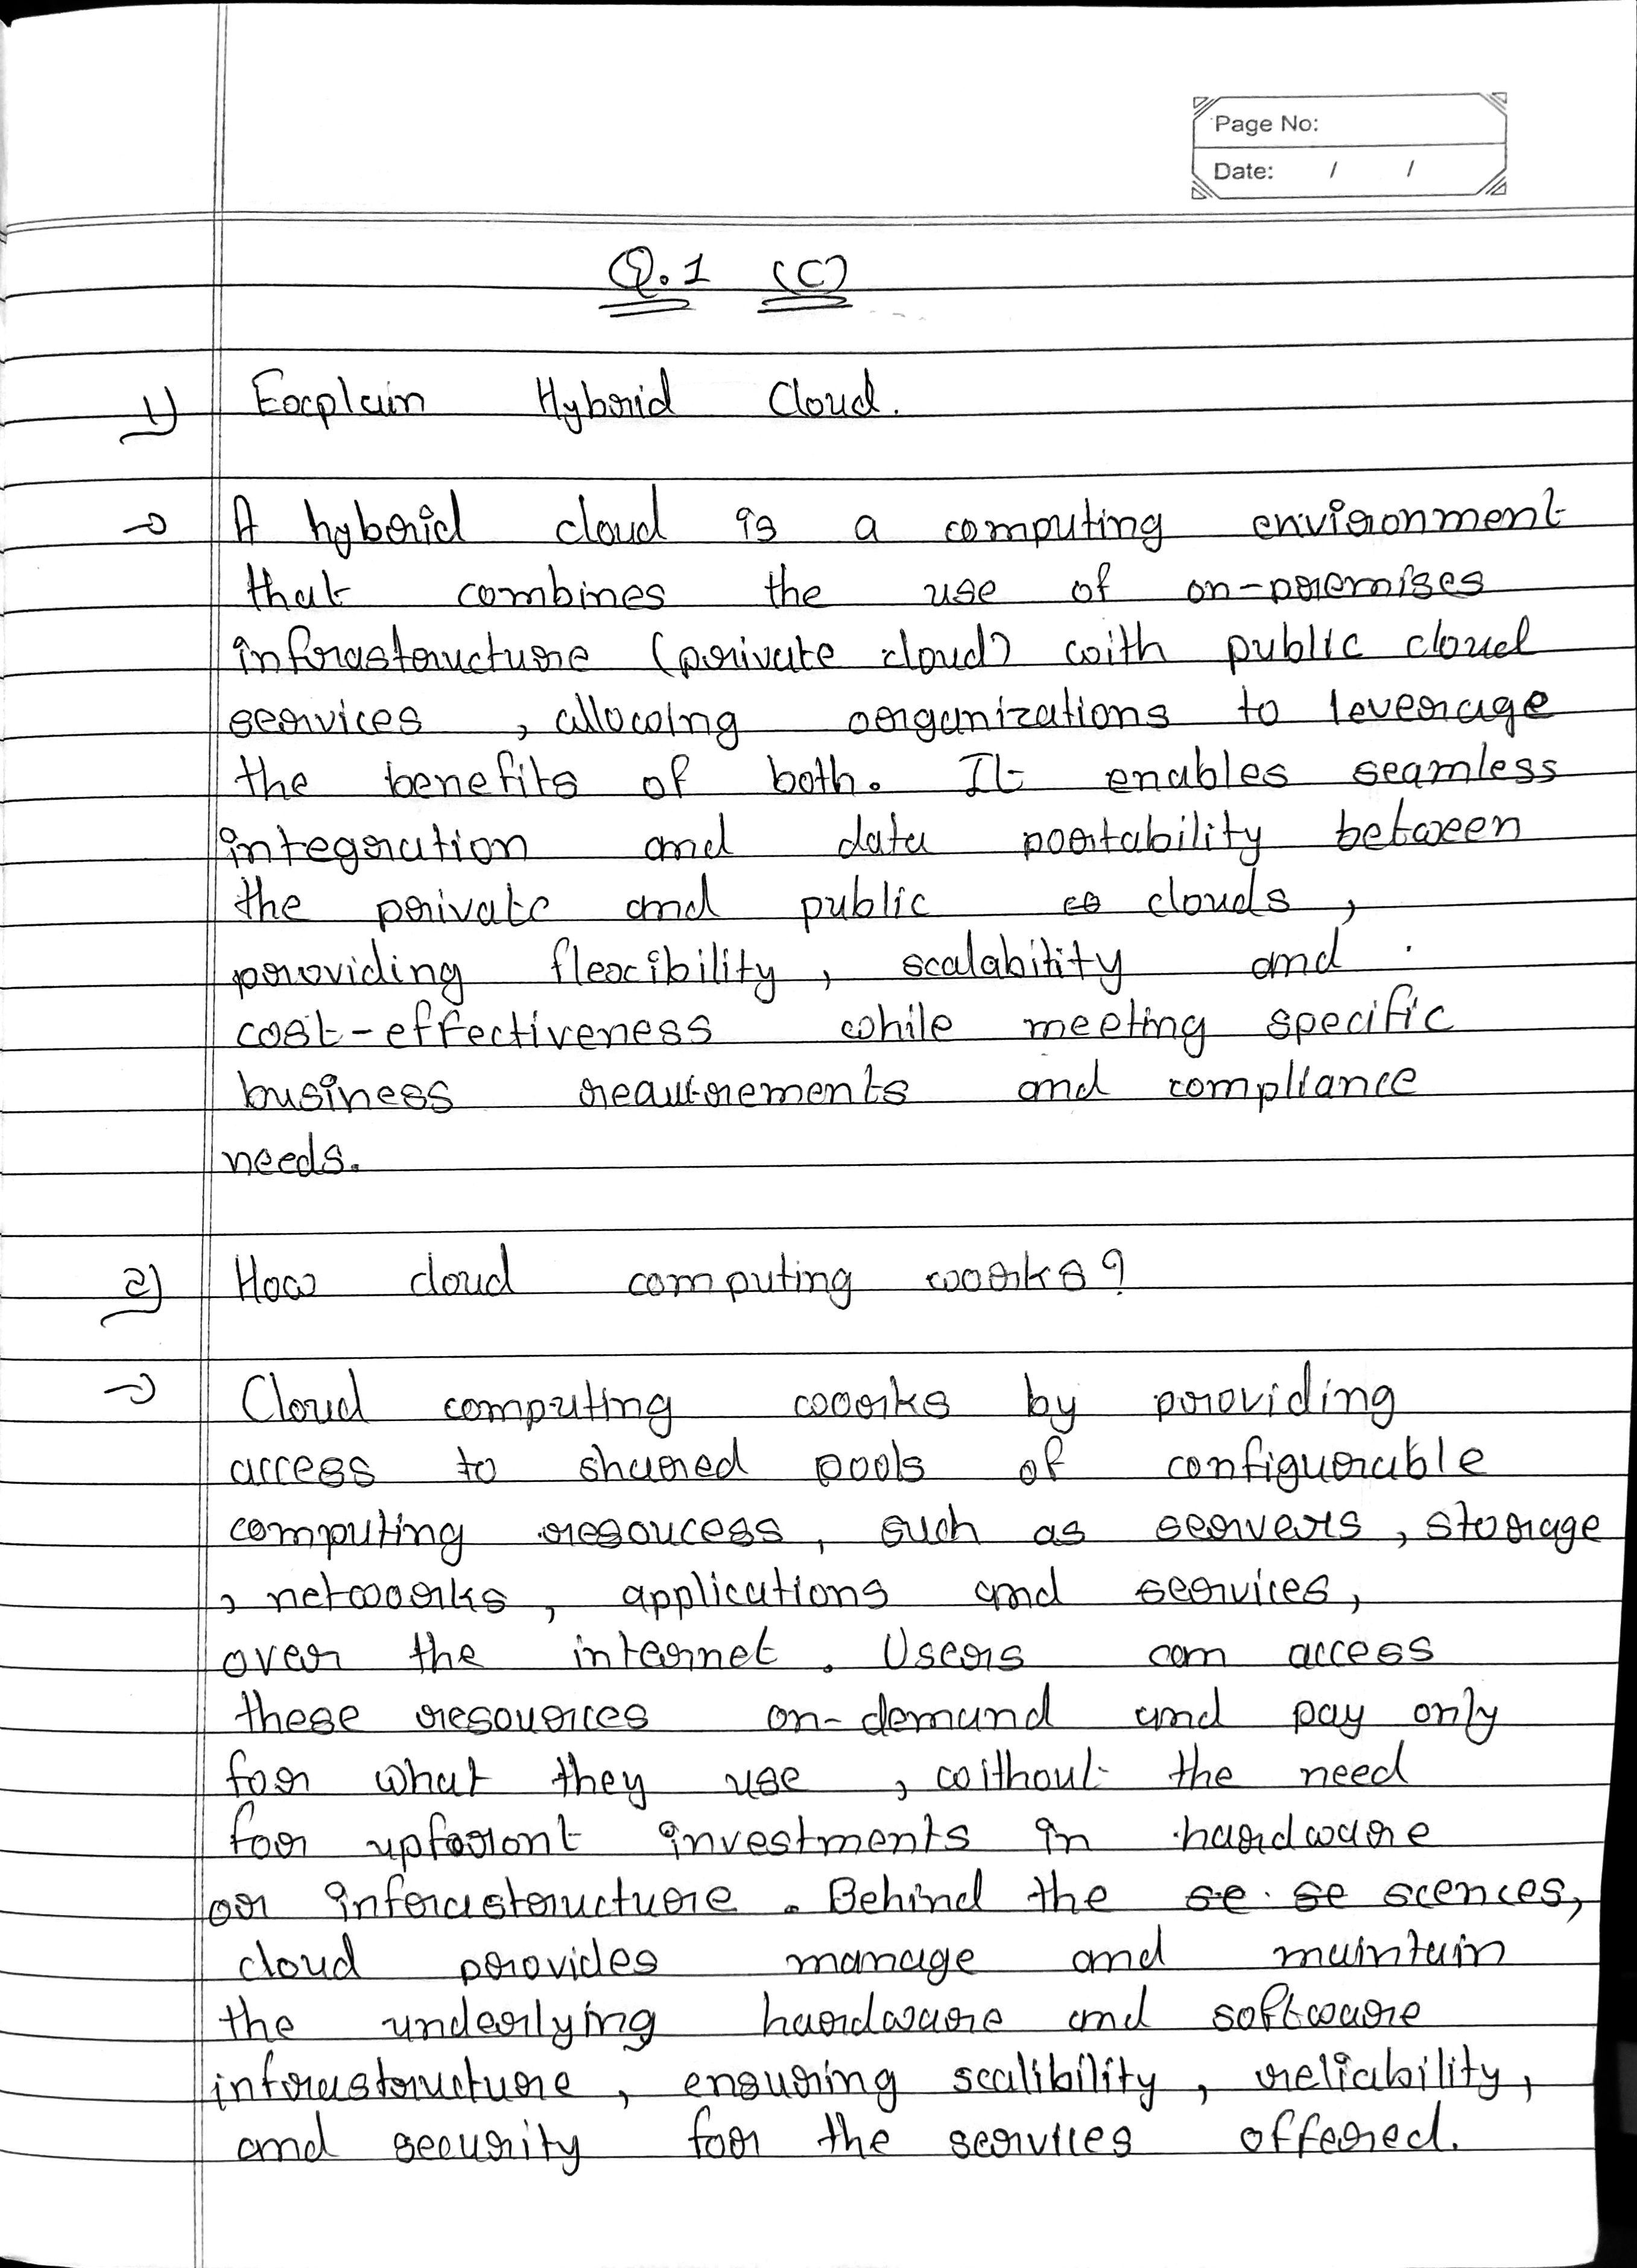 Page No:
Date: / /
Q.1 (C)
1) Explain Hybrid Cloud.
→ A hybrid cloud is a computing environment
that combines the use of on-premises
infrastructure (private cloud) with public cloud
services , allowing organizations to leverage
the benefits of both. It enables seamless
integration and data portability between
the private and public co clouds ,
providing flexibility , scalability and
cost-effectiveness while meeting specific
business requirements and compliance
needs.
2) How cloud computing works?
→ Cloud computing works by providing
access to shared pools of configurable
computing resoucess , such as servers , storage
, networks , applications and services ,
over the internet . Users can access
these resources on-demand and pay only
for what they use , without the need
for upfront investments in hardware
or infrastructure . Behind the se se scences,
cloud provides manage and maintain
the underlying hardware and software
infrastructure , ensuring scalibility , reliability ,
and security for the services offered.